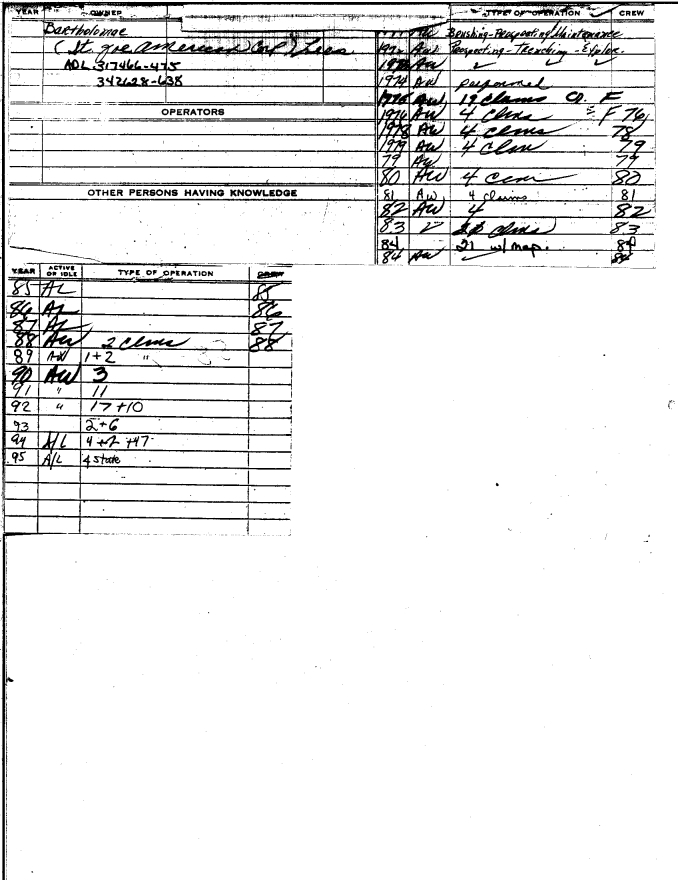 YEAR OWNER
Bartholomae
(St. Joe American Corp) Lessee
ADL 317466-475
342628-638
OPERATORS
OTHER PERSONS HAVING KNOWLEDGE
TYPE OF OPERATION CREW
Brushing-Prospecting Maintenance
197 AW Prospecting - Trenching - Explor.
AW ✓ ✓ ✓
1974 AW performed
AW 19 claims F
1976 AW 4 clms F 76
1978 AW 4 clms 78
1979 AW 4 clm 79
79 AW 79
80 AW 4 80
81 AW 4 claims 81
82 AW 4 82
83 ✓ clms 83
84 21 w/ map. 84
84 AW 84
YEAR ACTIVE OR IDLE TYPE OF OPERATION CREW
85 AL 85
86 AL 86
87 AL 87
88 AW 2 clms 88
89 AW 1+2 "
90 AW 3
91 " 11
92 " 17+10
93 2+6
94 A/L 4 +2 +47
95 A/L 4 state